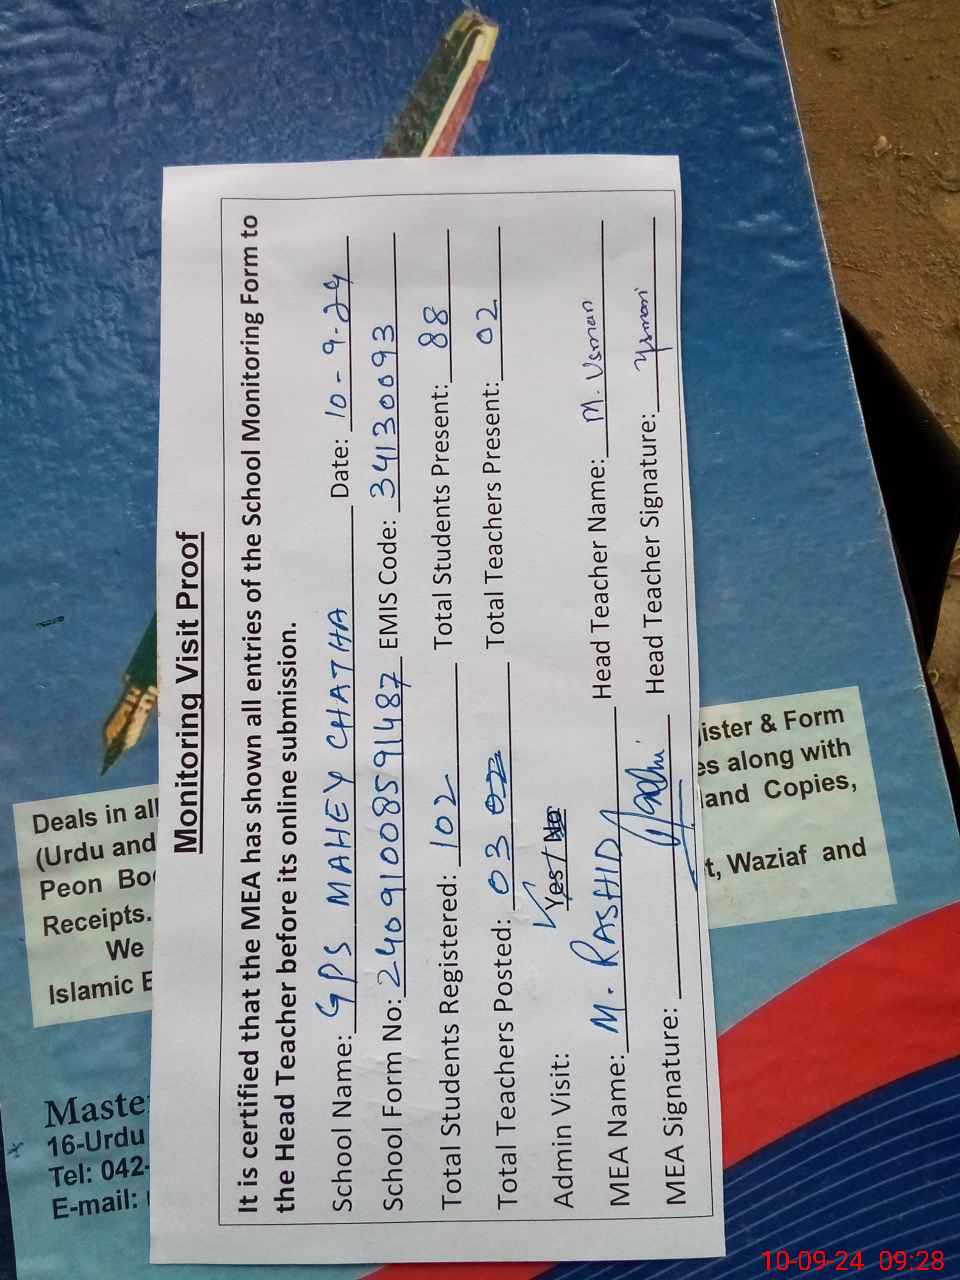 Monitoring Visit Proof
It is certified that the MEA has shown all entries of the School Monitoring Form to
the Head Teacher before its online submission.
School Name: GPS MAHEY CHATHA Date: 10-9-24
School Form No: 24091008591487 EMIS Code: 34130093
Total Students Registered: 102 Total Students Present: 88
Total Teachers Posted: 03 02 Total Teachers Present: 02
Admin Visit: Yes/No
MEA Name: M. RASHID Head Teacher Name: M. Usman
MEA Signature: Head Teacher Signature: Usman
Deals in all
(Urdu and
Peon
Receipts.
We
Islamic
Maste
16-Urdu
Tel: 042-
E-mail:
ister & Form
es along with
and Copies,
t, Waziaf and
10-09-24 09:28